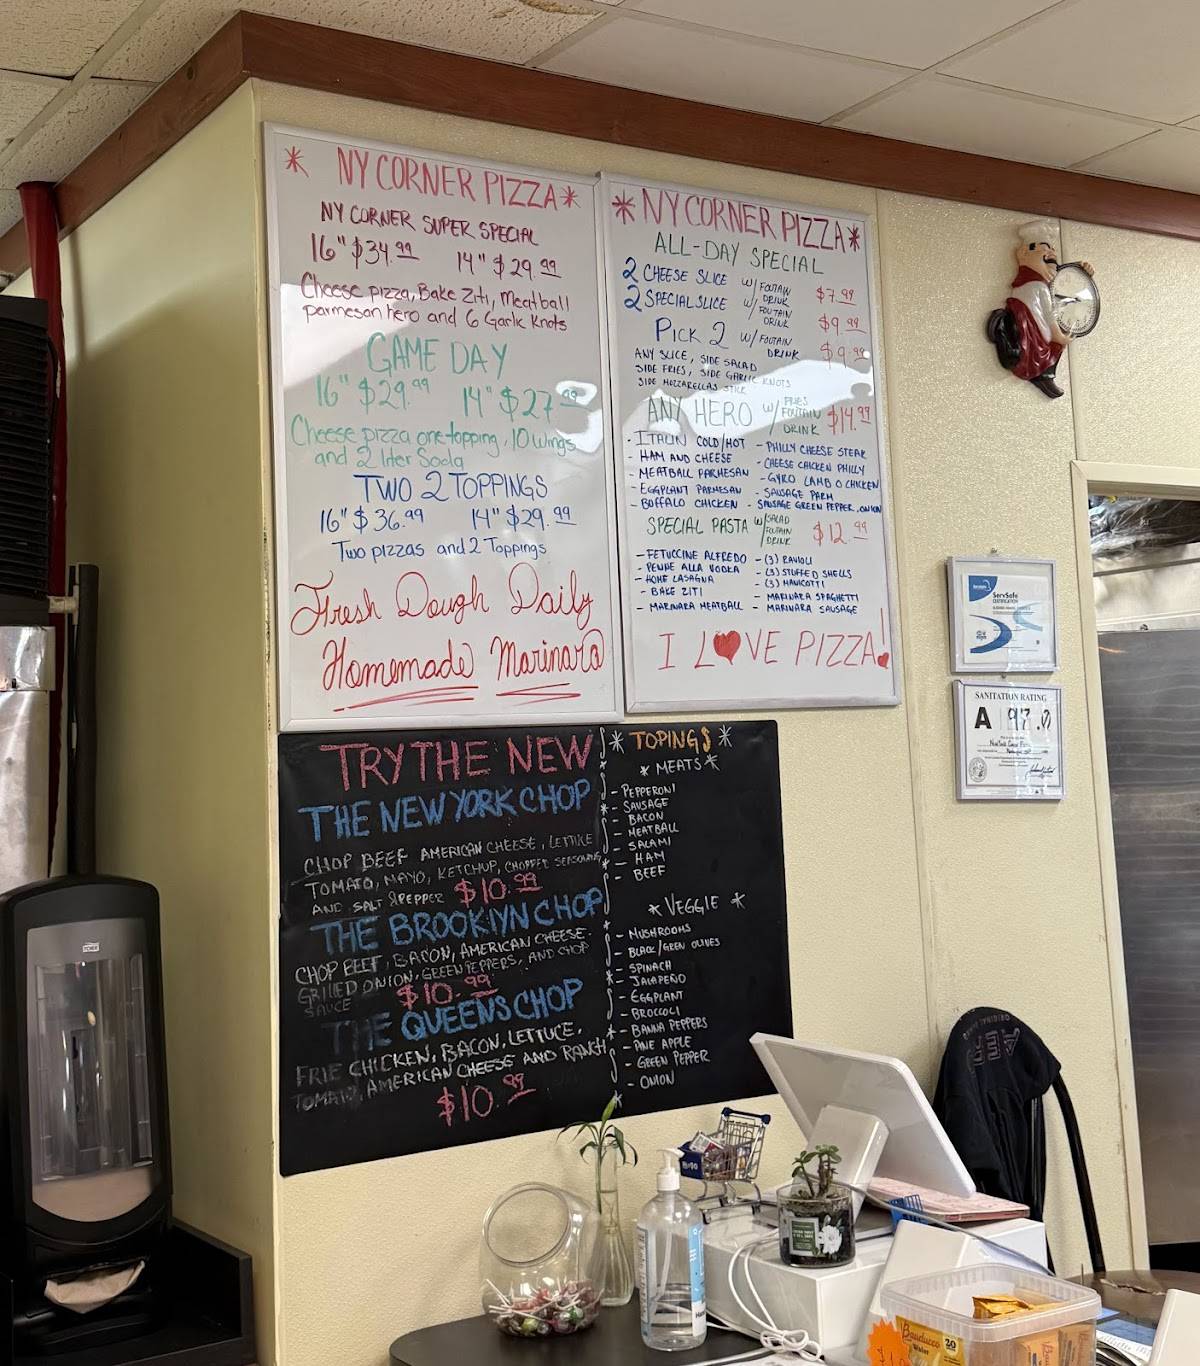 * NY CORNER PIZZA *
NY CORNER SUPER SPECIAL
16" $34.99 14" $29.99
Cheese pizza, Bake Ziti, Meatball
parmesan hero and 6 Garlic Knots
GAME DAY
16" $29.99 14" $27.99
Cheese pizza one topping, 10 wings
and 2 liter Soda
TWO 2 TOPPINGS
16" $36.99 14" $29.99
Two pizzas and 2 Toppings
Fresh Dough Daily
Homemade Marinara
* NY CORNER PIZZA *
ALL-DAY SPECIAL
2 CHEESE SLICE W/ FOUTAIN DRINK $7.99
2 SPECIAL SLICE W/ FOUTAIN DRINK $9.99
PICK 2 W/ FOUTAIN DRINK $9.99
ANY SLICE, SIDE SALAD
SIDE FRIES, SIDE GARLIC KNOTS
SIDE MOZZARELLAS STICK
ANY HERO W/ FRIES FOUTAIN DRINK $14.99
- ITALIN COLD/HOT
- HAM AND CHEESE
- MEATBALL PARMESAN
- EGGPLANT PARMESAN
- BUFFALO CHICKEN
- PHILLY CHEESE STEAK
- CHEESE CHICKEN PHILLY
- GYRO LAMB O CHICKEN
- SAUSAGE PARM
- SAUSAGE GREEN PEPPER, ONION
SPECIAL PASTA W/ SALAD FOUTAIN DRINK $12.99
- FETUCCINE ALFREDO
- PENNE ALLA VODKA
- HOME LASAGNA
- BAKE ZITI
- MARINARA MEATBALL
- (3) RAVIOLI
- (3) STUFFED SHELLS
- (3) MANICOTTI
- MARINARA SPAGHETTI
- MARINARA SAUSAGE
I L❤VE PIZZA!
TRY THE NEW
THE NEW YORK CHOP
CHOP BEEF AMERICAN CHEESE, LETTUCE
TOMATO, MAYO, KETCHUP, CHOPPED SEASONING
AND SALT & PEPPER $10.99
THE BROOKLYN CHOP
CHOP BEEF, BACON, AMERICAN CHEESE.
GRILLED ONION, GREEN PEPPERS, AND CHOP
SAUCE $10.99
THE QUEENS CHOP
FRIE CHICKEN, BACON, LETTUCE,
TOMATO, AMERICAN CHEESE AND RANCH
$10.99
* TOPINGS *
* MEATS *
- PEPPERONI
- SAUSAGE
- BACON
- MEATBALL
- SALAMI
- HAM
- BEEF
* VEGGIE *
- MUSHROOMS
- BLACK/GREN OLIVES
- SPINACH
- JALAPEÑO
- EGGPLANT
- BROCCOLI
- BANNA PEPPERS
- PINE APPLE
- GREEN PEPPER
- ONION
ServSafe
CERTIFICATION
SANITATION RATING
A 97.0
Bauducco
Wafer
20